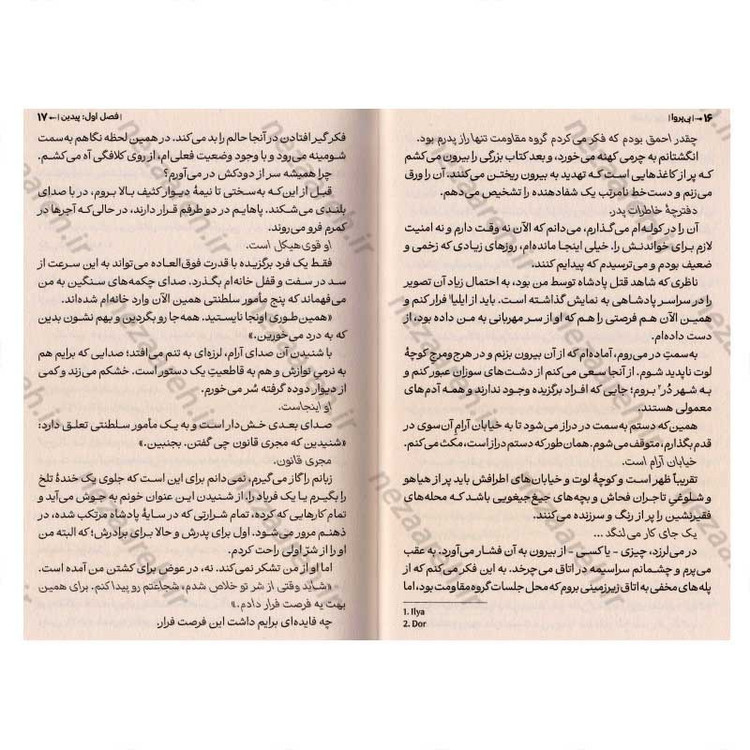 ۱۶ → | بی‌پروا |
چقدر احمق بودم که فکر می‌کردم گروه مقاومت تنها راز پدرم بود.
انگشتانم به چرمی کهنه می‌خورد، و بعد کتاب بزرگی را بیرون می‌کشم
که پر از کاغذهایی است کـه تهدید به بیرون ریختـن می‌کنند. آن را ورق
می‌زنم و دست‌خط نامرتب یک شفادهنده را تشخیص می‌دهم.
دفترچهٔ خاطرات پدر.
آن را در کوله‌ام می‌گذارم، می‌دانم که الآن نه وقت دارم و نه امنیت
لازم برای خواندنـش را. خیلی اینجـا مانده‌ام، روزهای زیـادی کـه زخمی و
ضعیف بودم و می‌ترسیدم که پیدایم کنند.
ناظری که شاهد قتل پادشاه توسط من بود، به احتمال زیاد آن تصویر
را در سراسر پادشـاهی به نمایش گذاشـته است. باید از ایلیا¹ فرار کنم و
همین الآن هـم فرصتی را هـم که او از سـر مهربانی به مـن داده بود، از
دست داده‌ام.
به‌سمتِ در می‌روم، آماده‌ام که از آن بیرون بزنم و در هرج‌ومرج کوچهٔ
لوت ناپدید شـوم. از آنجـا سعی می‌کنم از دشـت‌های سـوزان عبور کنم و
به شـهر دُر² بروم؛ جایی که افراد برگزیده وجود ندارند و همه آدم‌های
معمولی هستند.
همین‌که دستم به‌سمت در دراز می‌شود تا به خیابان آرامِ آن‌سوی در
قدم بگذارم، متوقف می‌شوم. همان‌طور که دستم دراز است، مکث می‌کنم.
خیابان آرام است.
تقریباً ظهر است و کوچهٔ لوت و خیابان‌های اطرافش باید پر از هیاهو
و شـلوغی تاجـران فحاش و بچه‌های جیغ‌جیغویی باشـد کـه محله‌های
فقیرنشین را پر از رنگ و سرزنده می‌کنند.
یک جای کار می‌لنگد ...
در می‌لرزد، چیزی - یا کسی - از بیرون به آن فشار می‌آورد. به عقب
می‌پرم و چشمانم سراسیمه در اتاق می‌چرخد. به این فکر می‌کنم که از
پله‌های مخفی به اتاق زیرزمینی بروم که محل جلسات گروه مقاومت بود، اما
1. Ilya
2. Dor
| فصل اول: پیدین | ← ۱۷
فکر گیر افتادن در آنجا حالم را بد می‌کند. در همین لحظه نگاهم به‌سمت
شومینه می‌رود و با وجود وضعیت فعلی‌ام، از روی کلافگی آه می‌کشم.
چرا همیشه سر از دودکش در می‌آورم؟
قبـل از این کـه به‌سـختی تا نیمهٔ دیـوار کثیف بـالا بـروم، در با صدای
بلنـدی می‌شـکند. پاهایـم در دو طرفـم قـرار دارنـد، در حالـی کـه آجرها در
کمرم فرو می‌روند.
او قوی‌هیکل است.
فقـط یک فرد برگزیده با قدرت فوق‌العاده می‌تواند به این سرعت از
سد در سفت و قفل خانه‌ام بگذرد. صدای چکمه‌های سنگین به من
می‌فهماند که پنج مأمور سلطنتی همین الآن وارد خانه‌ام شده‌اند.
«همین‌طوری اونجا نایستید. همه‌جا رو بگردین و بهم نشون بدین
که به درد می‌خورین.»
با شنیدن آن صدای آرام، لرزه‌ای به تنم می‌افتد؛ صدایی که برایم هم
به نرمیِ نوازش و هم به قاطعیتِ یک دستور است. خشکم می‌زند و کمی
از دیوار دوده گرفته سُر می‌خورم.
او اینجاست.
صـدای بعـدی خـش‌دار است و به یک مأمور سلطنتی تعلـق دارد:
«شنیدین که مجری قانون چی گفتن. بجنبین.»
مجری قانون.
زبانم را گاز می‌گیرم، نمی‌دانم برای این است که جلوی یک خندهٔ تلخ
را بگیـرم یا یک فریاد را. از شـنیدن این عنـوان خونـم به جـوش می‌آید و
تمام کارهایی که کرده، تمام شرارتی که در سایهٔ پادشاه مرتکب شده، در
ذهنم مرور می‌شود. اول برای پدرش و حالا برای برادرش؛ که البته من
او را از شرّ اولی راحت کردم.
اما او از من تشکر نمی‌کند. نه، در عوض برای کشتن من آمده است.
«شـاید وقتی از شـر تو خلاص شدم، شجاعتم رو پیدا کنم. برای همین
بهت یه فرصت فرار دادم.»
چه فایده‌ای برایم داشت این فرصت فرار.
nezaareh.ir